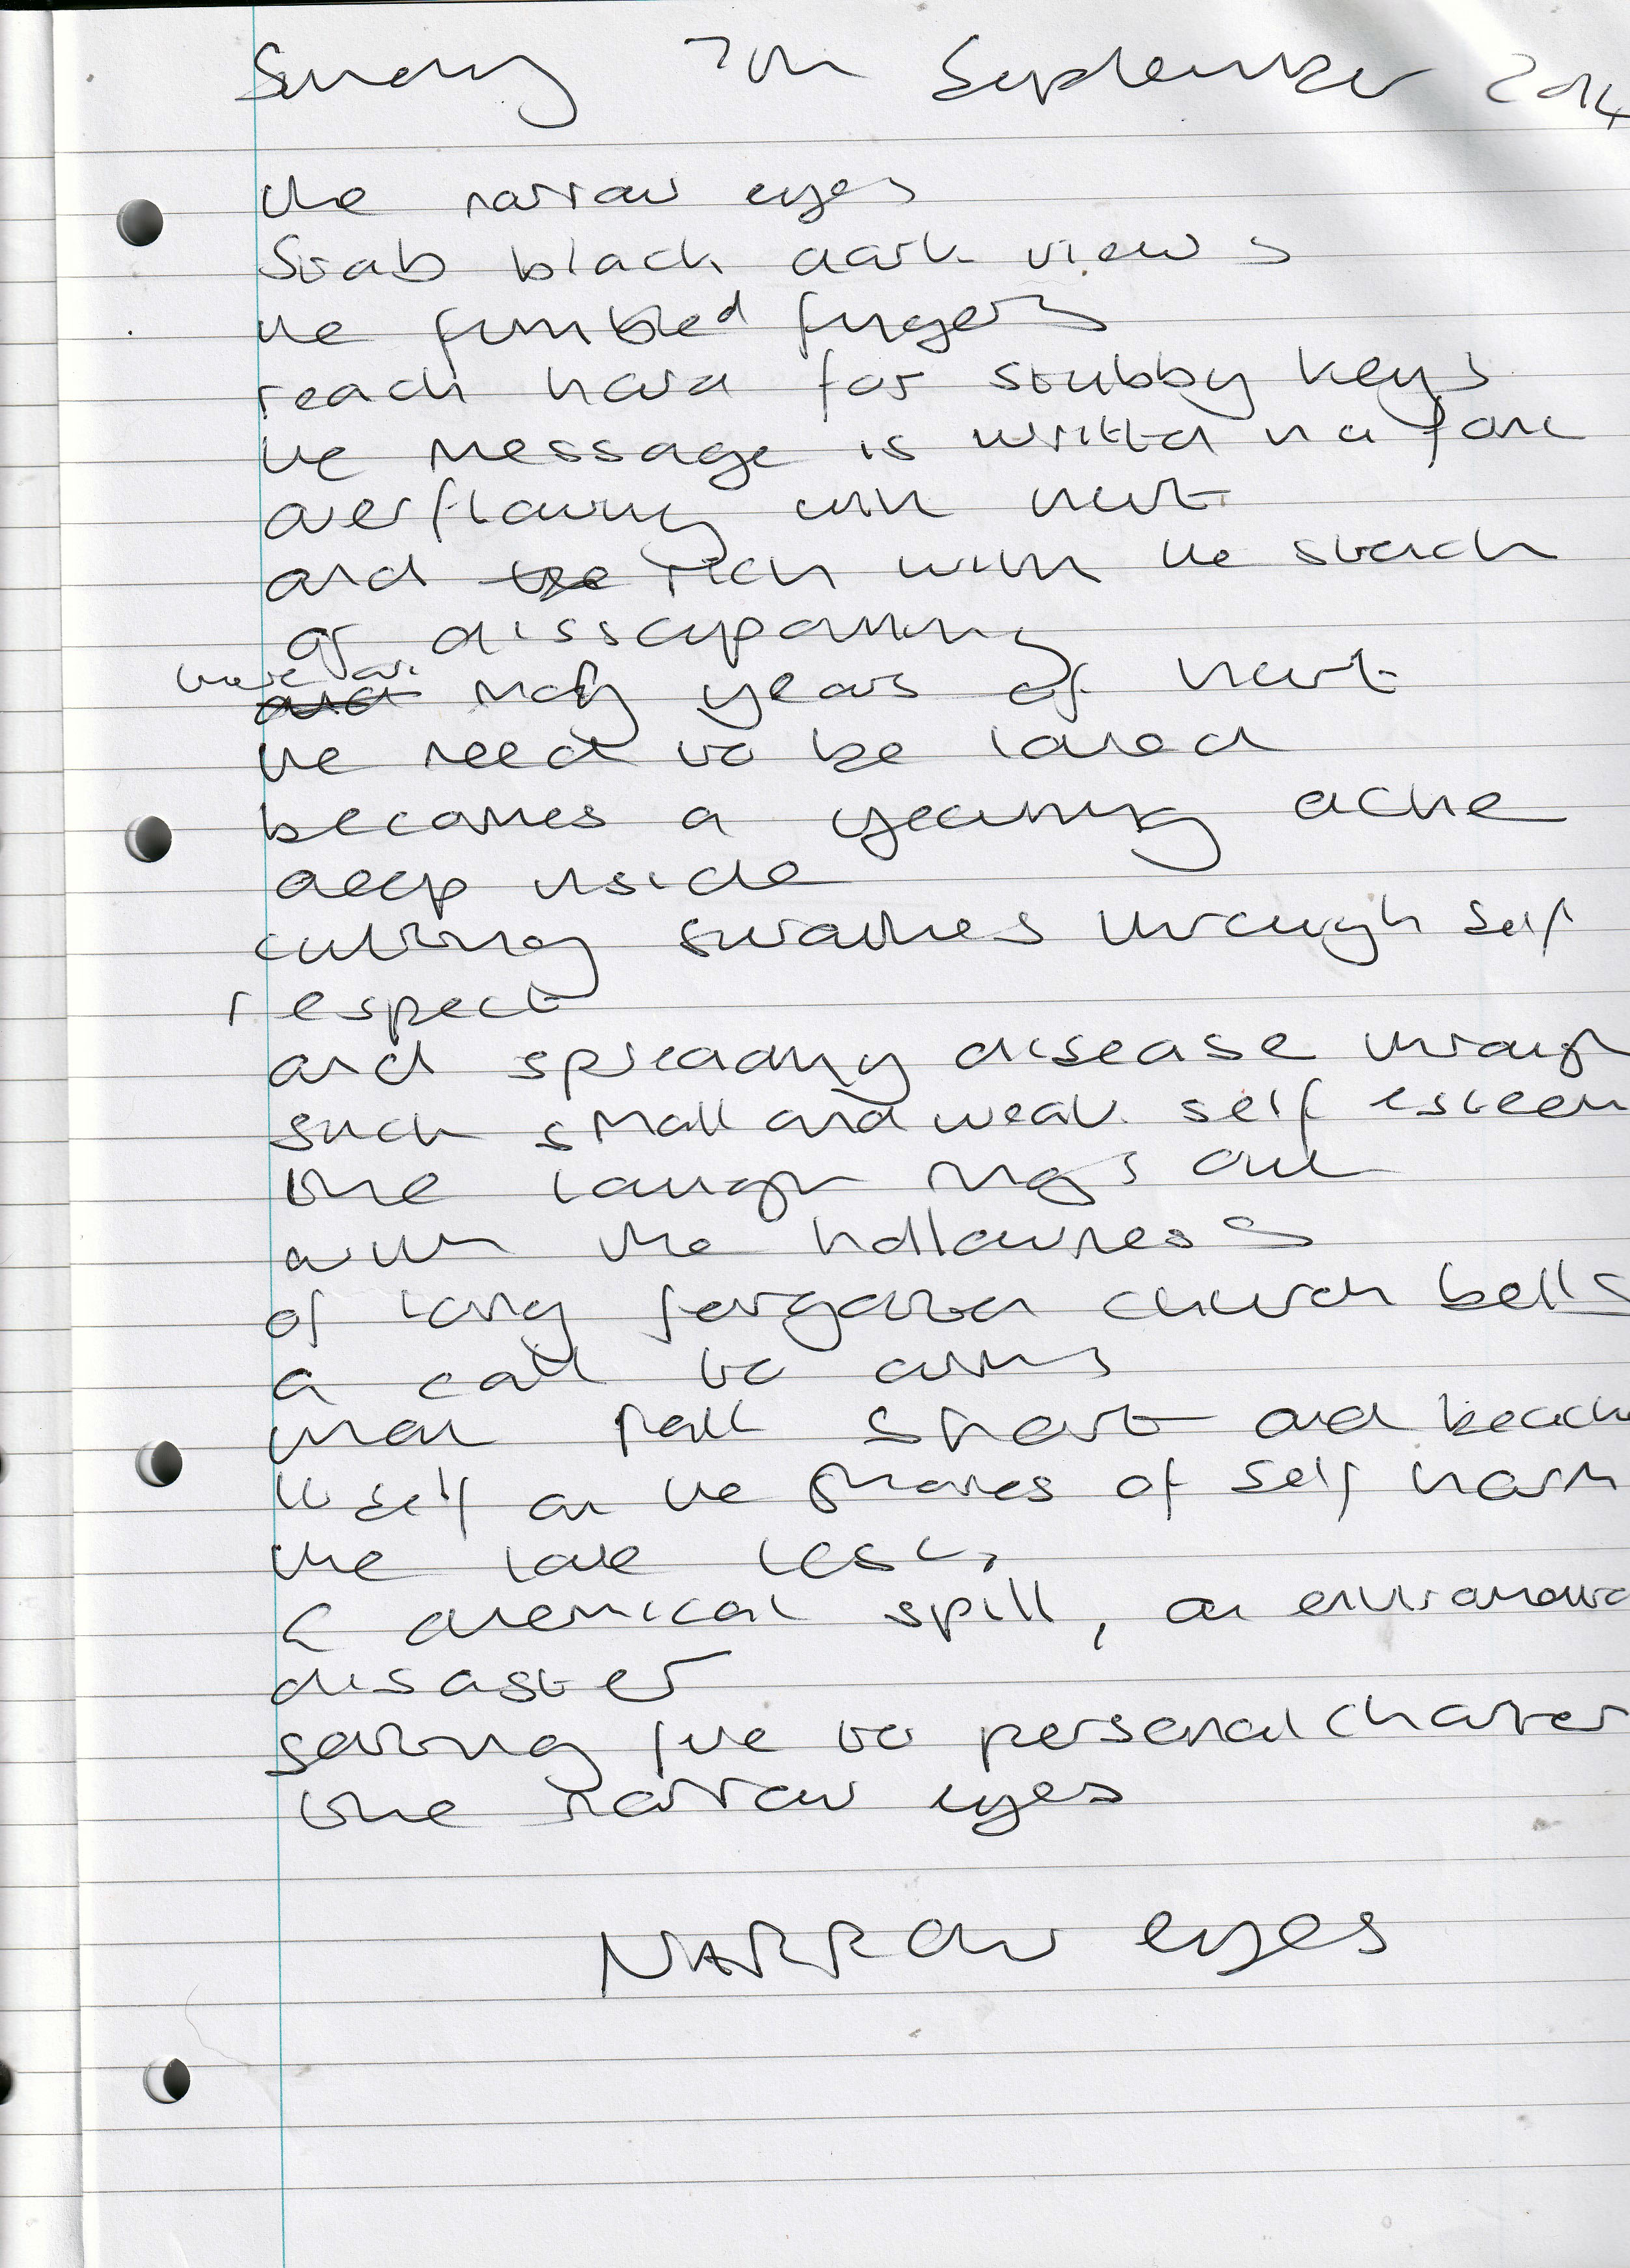 Sunday 7th September 2014
the narrow eyes
Stab black dark views
the fumbled fingers
reach hard for stubby keys
the message is written in a font
overflowing with hurt
and rich with the stench
of
many years of hurt
the need to be loved
becomes a yearning ache
deep inside
cutting swathes through self
respect
and spreading disease through
such small and weak self esteem
the laugh rings out
with the hollowness
of long forgotten church bells
a call to arms
that fall short and
itself on the of self harm
the love test,
a chemical spill, an
disaster
setting fire to personal
the narrow eyes
NARROW eyes